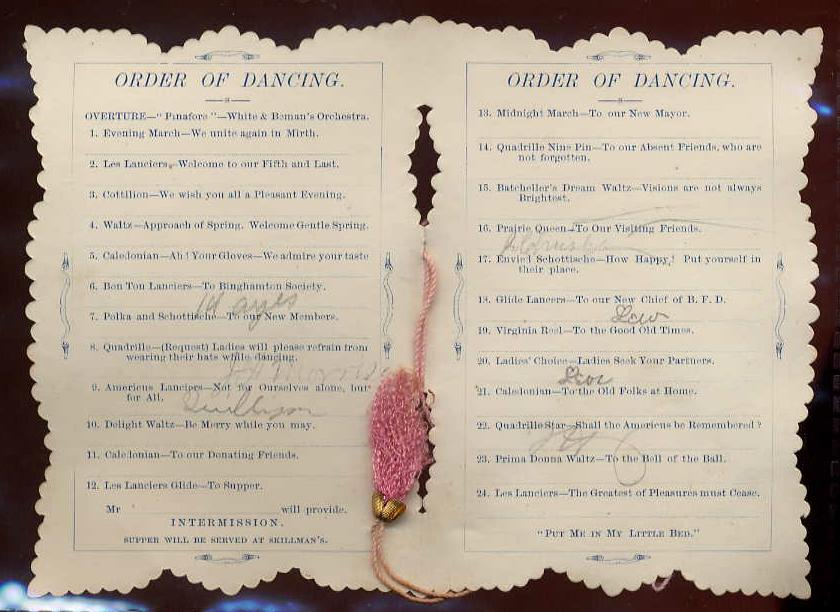 ORDER OF DANCING.
OVERTURE—"Pinafore"—White & Beman's Orchestra.
1. Evening March—We unite again in Mirth.
2. Les Lanciers—Welcome to our Fifth and Last.
3. Cotillion—We wish you all a Pleasant Evening.
4. Waltz—Approach of Spring. Welcome Gentle Spring.
5. Caledonian—Ah! Your Gloves—We admire your taste
6. Bon Ton Lanciers—To Binghamton Society.
7. Polka and Schottische—To our New Members.
8. Quadrille—(Request) Ladies will please refrain from
wearing their hats while dancing.
9. Americus Lanciers—Not for Ourselves alone, but
for All.
10. Delight Waltz—Be Merry while you may.
11. Caledonian—To our Donating Friends.
12. Les Lanciers Glide—To Supper.
Mr will provide.
INTERMISSION.
SUPPER WILL BE SERVED AT SKILLMAN'S.
ORDER OF DANCING.
13. Midnight March—To our New Mayor.
14. Quadrille Nine Pin—To our Absent Friends, who are
not forgotten.
15. Batcheller's Dream Waltz—Visions are not always
Brightest.
16. Prairie Queen—To Our Visiting Friends.
17. Envied Schottische—How Happy! Put yourself in
their place.
18. Glide Lancers—To our New Chief of B. F. D.
19. Virginia Reel—To the Good Old Times.
20. Ladies' Choice—Ladies Seek Your Partners.
21. Caledonian—To the Old Folks at Home.
22. Quadrille Star—Shall the Americus be Remembered?
23. Prima Donna Waltz—To the Bell of the Ball.
24. Les Lanciers—The Greatest of Pleasures must Cease.
"PUT ME IN MY LITTLE BED."